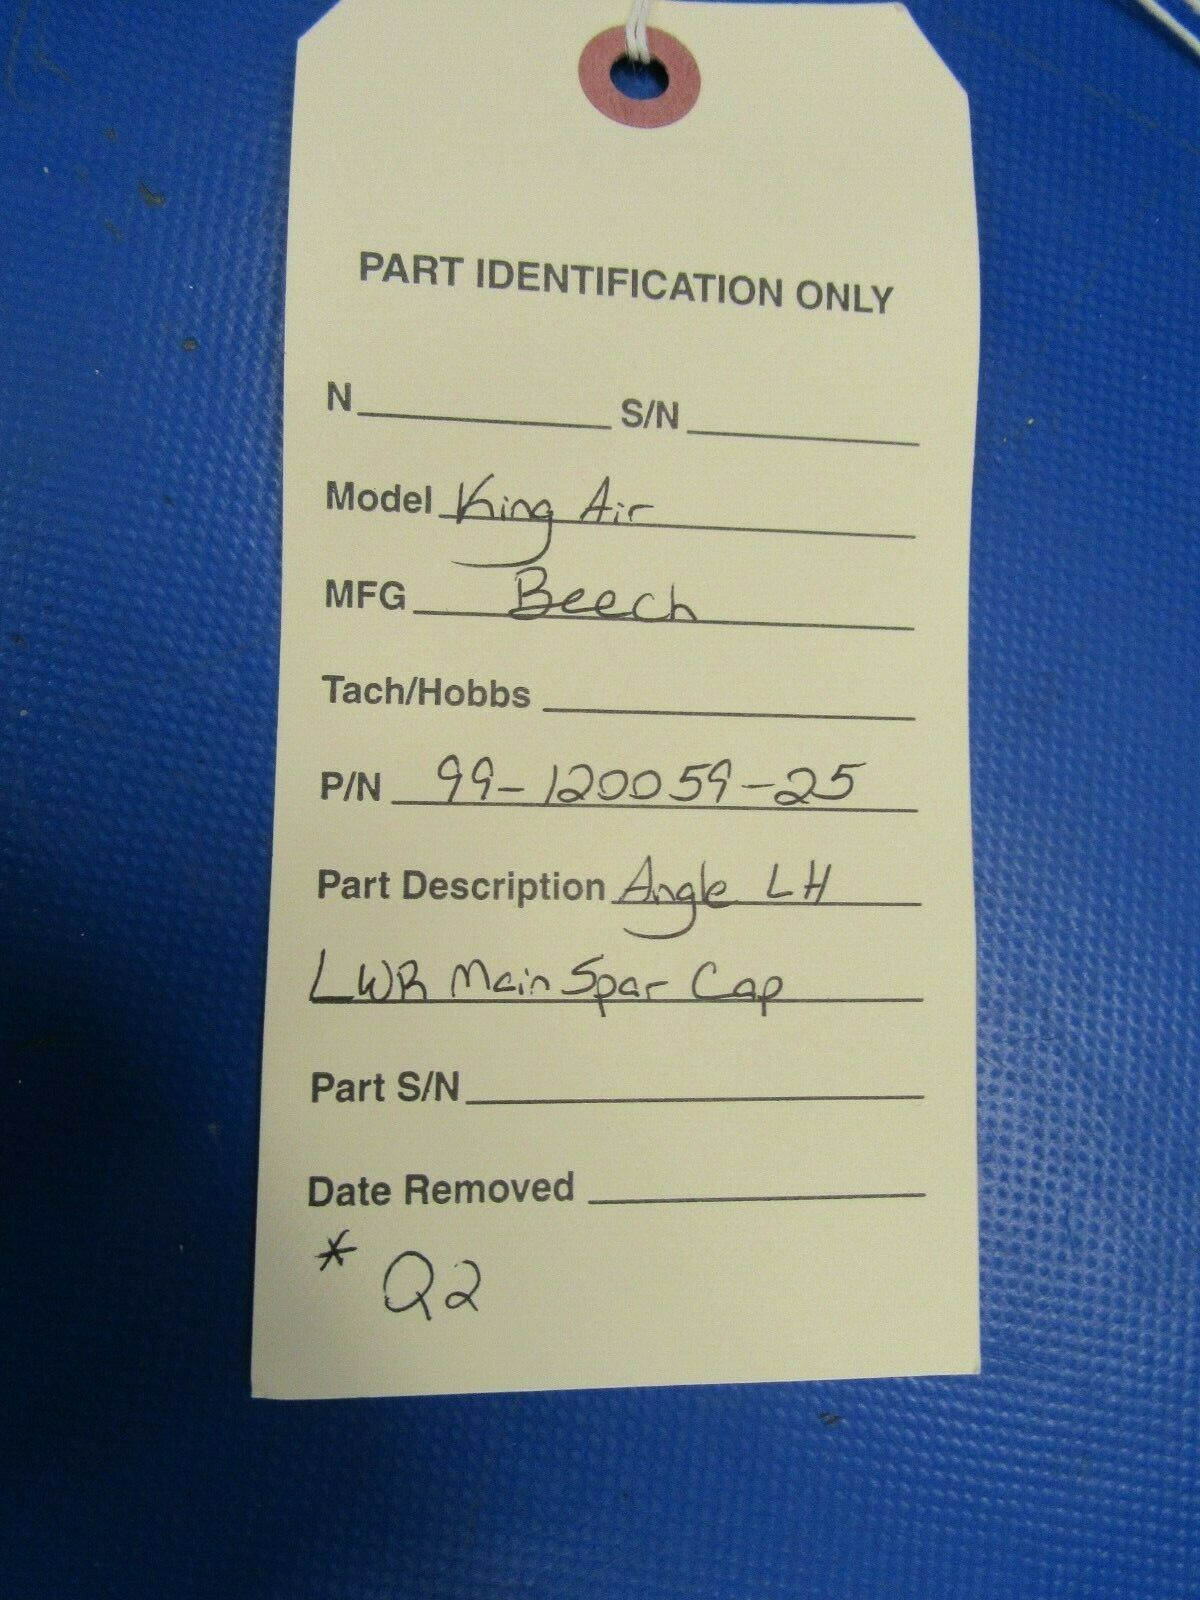 PART IDENTIFICATION ONLY
N S/N
Model King Air
MFG Beech
Tach/Hobbs
P/N 99-120059-25
Part Description Angle LH
LWR Main Spar Cap
Part S/N
Date Removed
* Q2